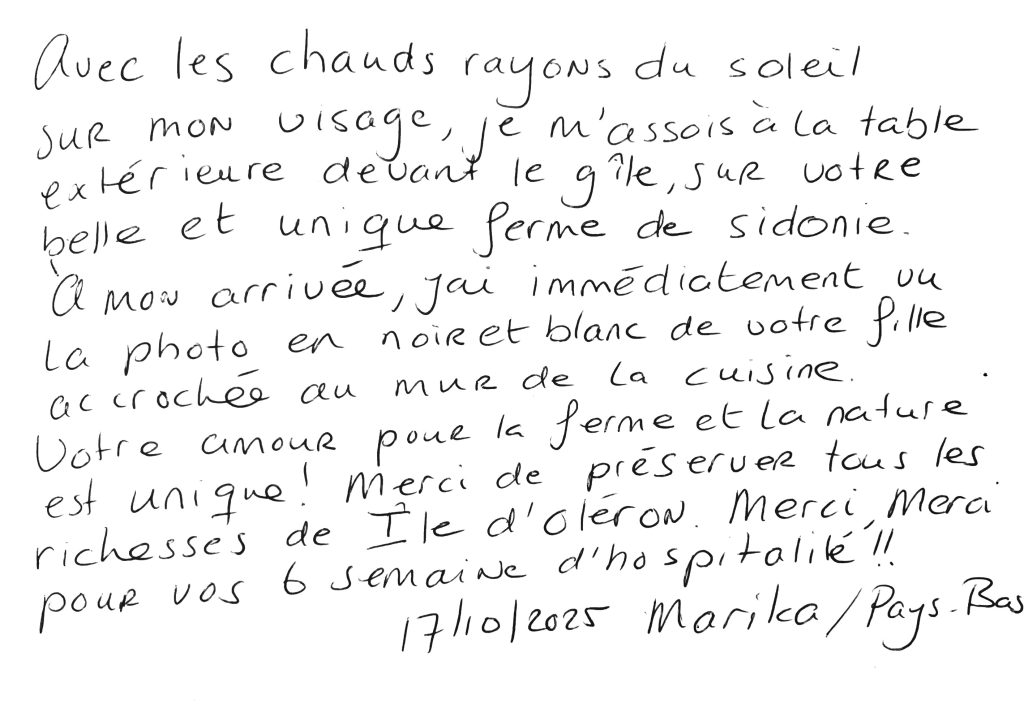 Avec les chauds rayons du soleil
sur mon visage, je m'assois à la table
extérieure devant le gîte, sur votre
belle et unique ferme de sidonie.
À mon arrivée, j'ai immédiatement vu
la photo en noir et blanc de votre fille
accrochée au mur de la cuisine.
Votre amour pour la ferme et la nature
est unique! Merci de préserver tous les
richesses de Île d'oléron. Merci, Merci
pour vos 6 semaine d'hospitalité!!
17/10/2025 Marika/Pays-Bas